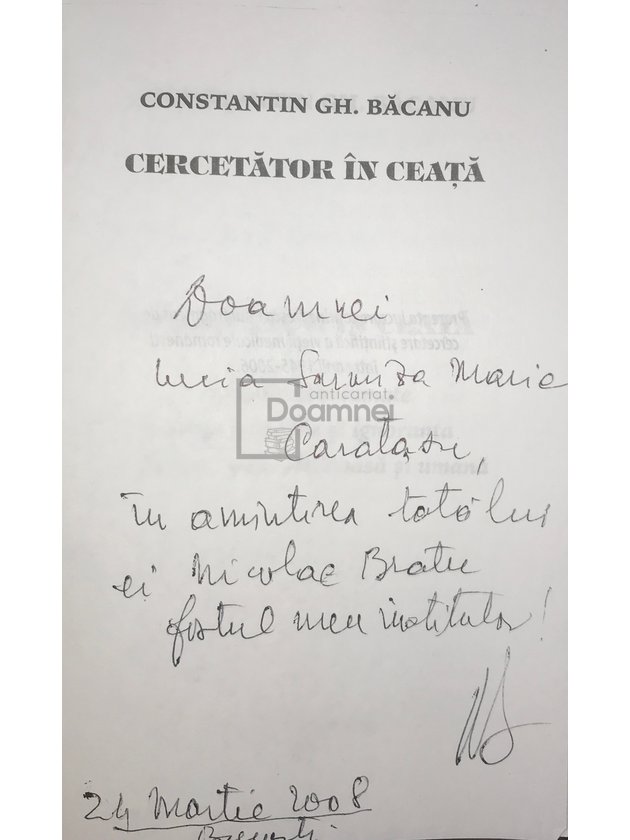 CONSTANTIN GH. BĂCANU
CERCETĂTOR ÎN CEAȚĂ
Doamnei
Lucia Sarmiza Maria
anticariat
Doamnei
Caratașu,
în amintirea tatălui
ei Nicolae Bratu
fostul meu institutor!
24 Martie 2008
București